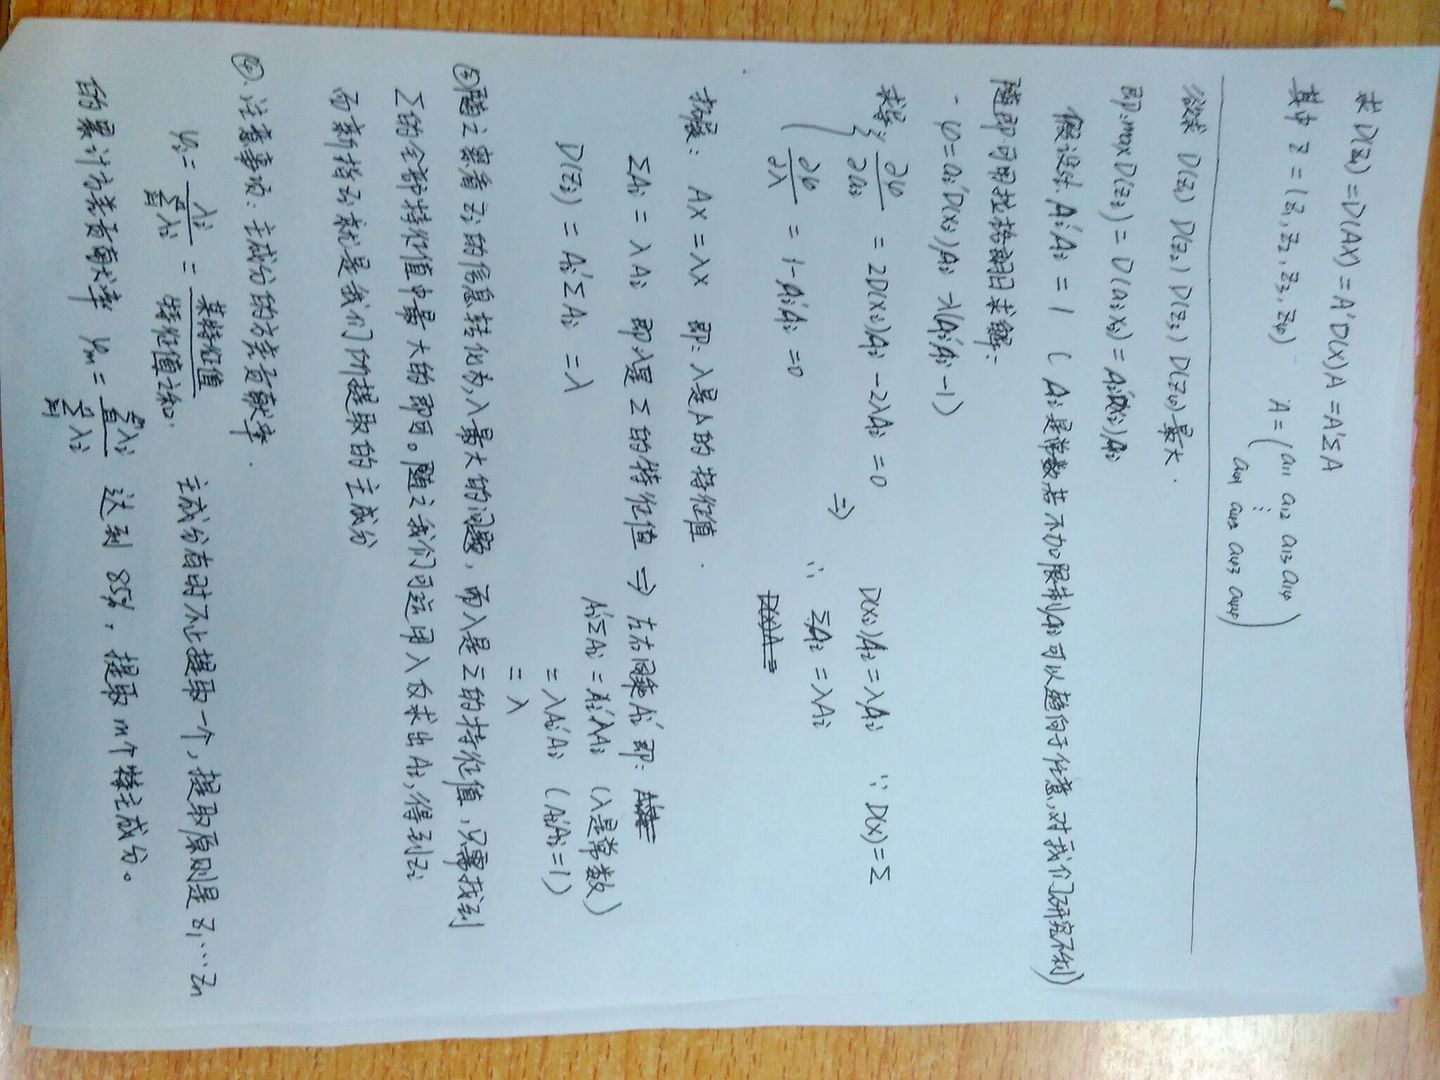 求 D(Z₁) = D(AX) = A'D(X)A = A'ΣA
其中 Z = (Z₁, Z₂, Z₃, Z₄) A = (a₁₁ a₁₂ a₁₃ a₁₄
⋮
a₄₁ a₄₂ a₄₃ a₄₄)
欲求 D(Z₁) D(Z₂) D(Z₃) D(Z₄) 最大.
即: max D(Zᵢ) = D(aᵢxᵢ) = Aᵢ'D(xᵢ)Aᵢ
假设: Aᵢ'Aᵢ = 1 (Aᵢ是常数,若不加限制,Aᵢ可以趋向于任意,对我们研究不利)
随即可用拉格朗日求解:
φ = aᵢ'D(xᵢ)Aᵢ - λ(Aᵢ'Aᵢ - 1)
求导: ∂φ/∂aᵢ = 2D(xᵢ)Aᵢ - 2λAᵢ = 0 ⇒ D(xᵢ)Aᵢ = λAᵢ ∵ D(x) = Σ
∂φ/∂λ = 1 - Aᵢ'Aᵢ = 0 ∴ ΣAᵢ = λAᵢ
拓展: AX = λX 即: λ是A的特征值.
ΣAᵢ = λAᵢ 即λ是Σ的特征值 ⇒ 左右同乘Aᵢ' 即:
Aᵢ'ΣAᵢ = Aᵢ'λAᵢ (λ是常数)
D(Zᵢ) = Aᵢ'ΣAᵢ = λ
= λAᵢ'Aᵢ (Aᵢ'Aᵢ = 1)
= λ
③随之察看Zᵢ的信息转化为,λ最大的问题,而λ是Σ的特征值,只需找到
Σ的全部特征值中最大的即可。随之我们可运用λ反求出Aᵢ,得到Zᵢ
而新指Zᵢ就是我们所提取的主成分
④.注意事项: 主成分的方差贡献率.
φᵢ = λᵢ/Σλᵢ = 某特征值/特征值之和. 主成分有时不止提取一个,提取原则是Z₁…Zn
的累计方差贡献率 φm = Σλᵢ/Σλᵢ 达到85%,提取m个特主成分。